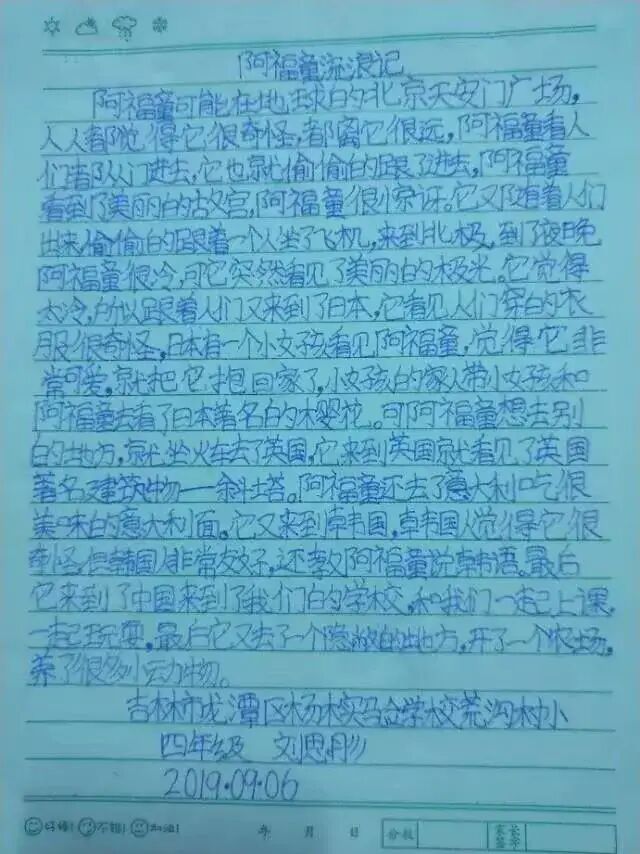 阿福童流浪记
阿福童可能在地球的北京天安门广场,
人人都觉得它很奇怪,都离它很远,阿福童看人
们都队门进去,它也就偷偷的跟了进去,阿福童
看到了美丽的故宫,阿福童很惊讶。它又随着人们
出来,偷偷的跟着一个人坐了飞机,来到北极,到夜晚
阿福童很冷,可它突然看见了美丽的极光。它觉得
太冷,所以跟着人们又来到了日本,它看见人们穿的衣
服很奇怪,日本有一个小女孩看见阿福童,觉得它非
常可爱,就把它抱回家了,小女孩的家人带小女孩和
阿福童去看了日本著名的樱花。可阿福童想去别
的地方,就坐火车去了英国,它来到英国就看见了英国
著名建筑物—斜塔。阿福童还去了意大利吃很
美味的意大利面。它又来到韩国,韩国人觉得它很
奇怪,但韩国人非常友好,还教阿福童说韩语。最后
它来到了中国来到了我们的学校,和我们一起上课,
一起玩耍,最后它又去了一个隐敝的地方,开了一个农场,
养了很多小动物。
吉林市龙潭区杨木实验学校荒沟村小
四年级 刘思彤
2019.09.06
好棒! 不错! 加油! 年 月 日 分数 家长签字